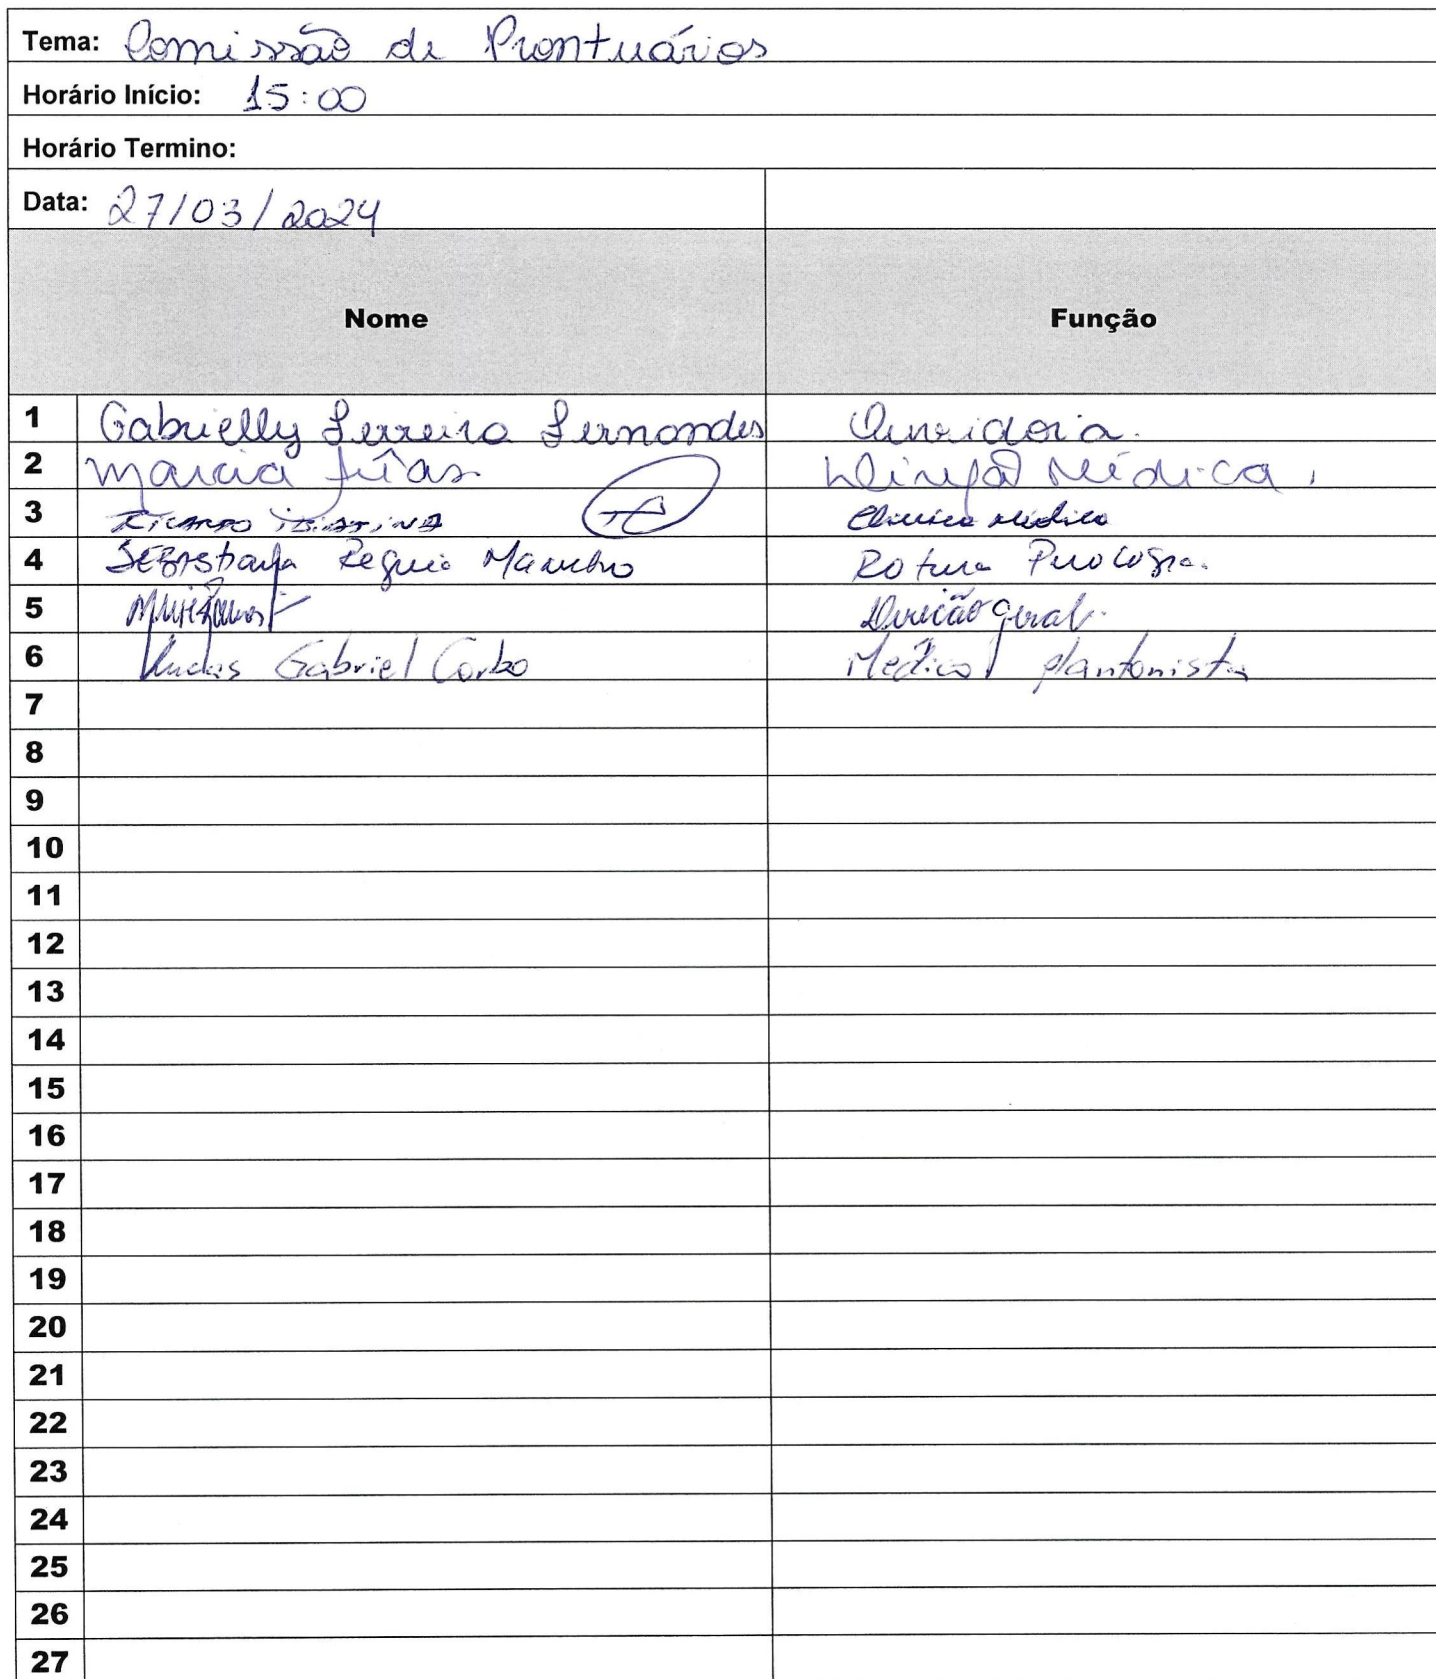 Tema: Comissão de Prontuários
Horário Início: 15:00
Horário Termino:
Data: 27/03/2024
Nome Função
1 Gabrielly Ferreira Fernandes Ouvidoria.
2 Marcia Direção Médica.
3 Ricardo Clínica Médica
4 Sebastiana Rotina
5 Direção Geral.
6 Lucas Gabriel Corbo Médico plantonista
7
8
9
10
11
12
13
14
15
16
17
18
19
20
21
22
23
24
25
26
27